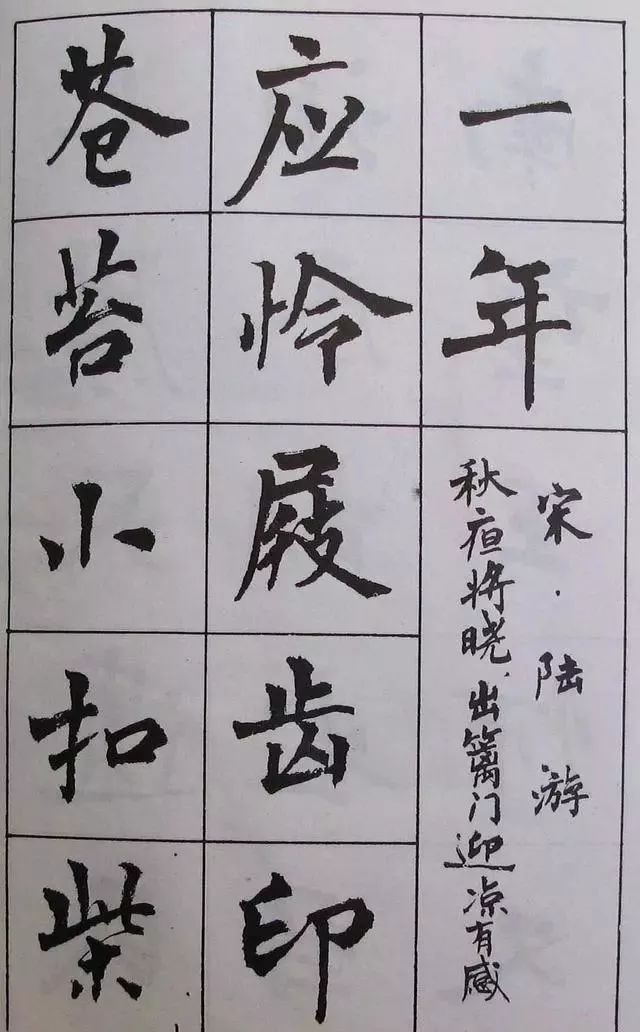 一年
宋·陆游
秋夜将晓、出篱门迎凉有感
应怜屐齿印
苍苔小扣柴